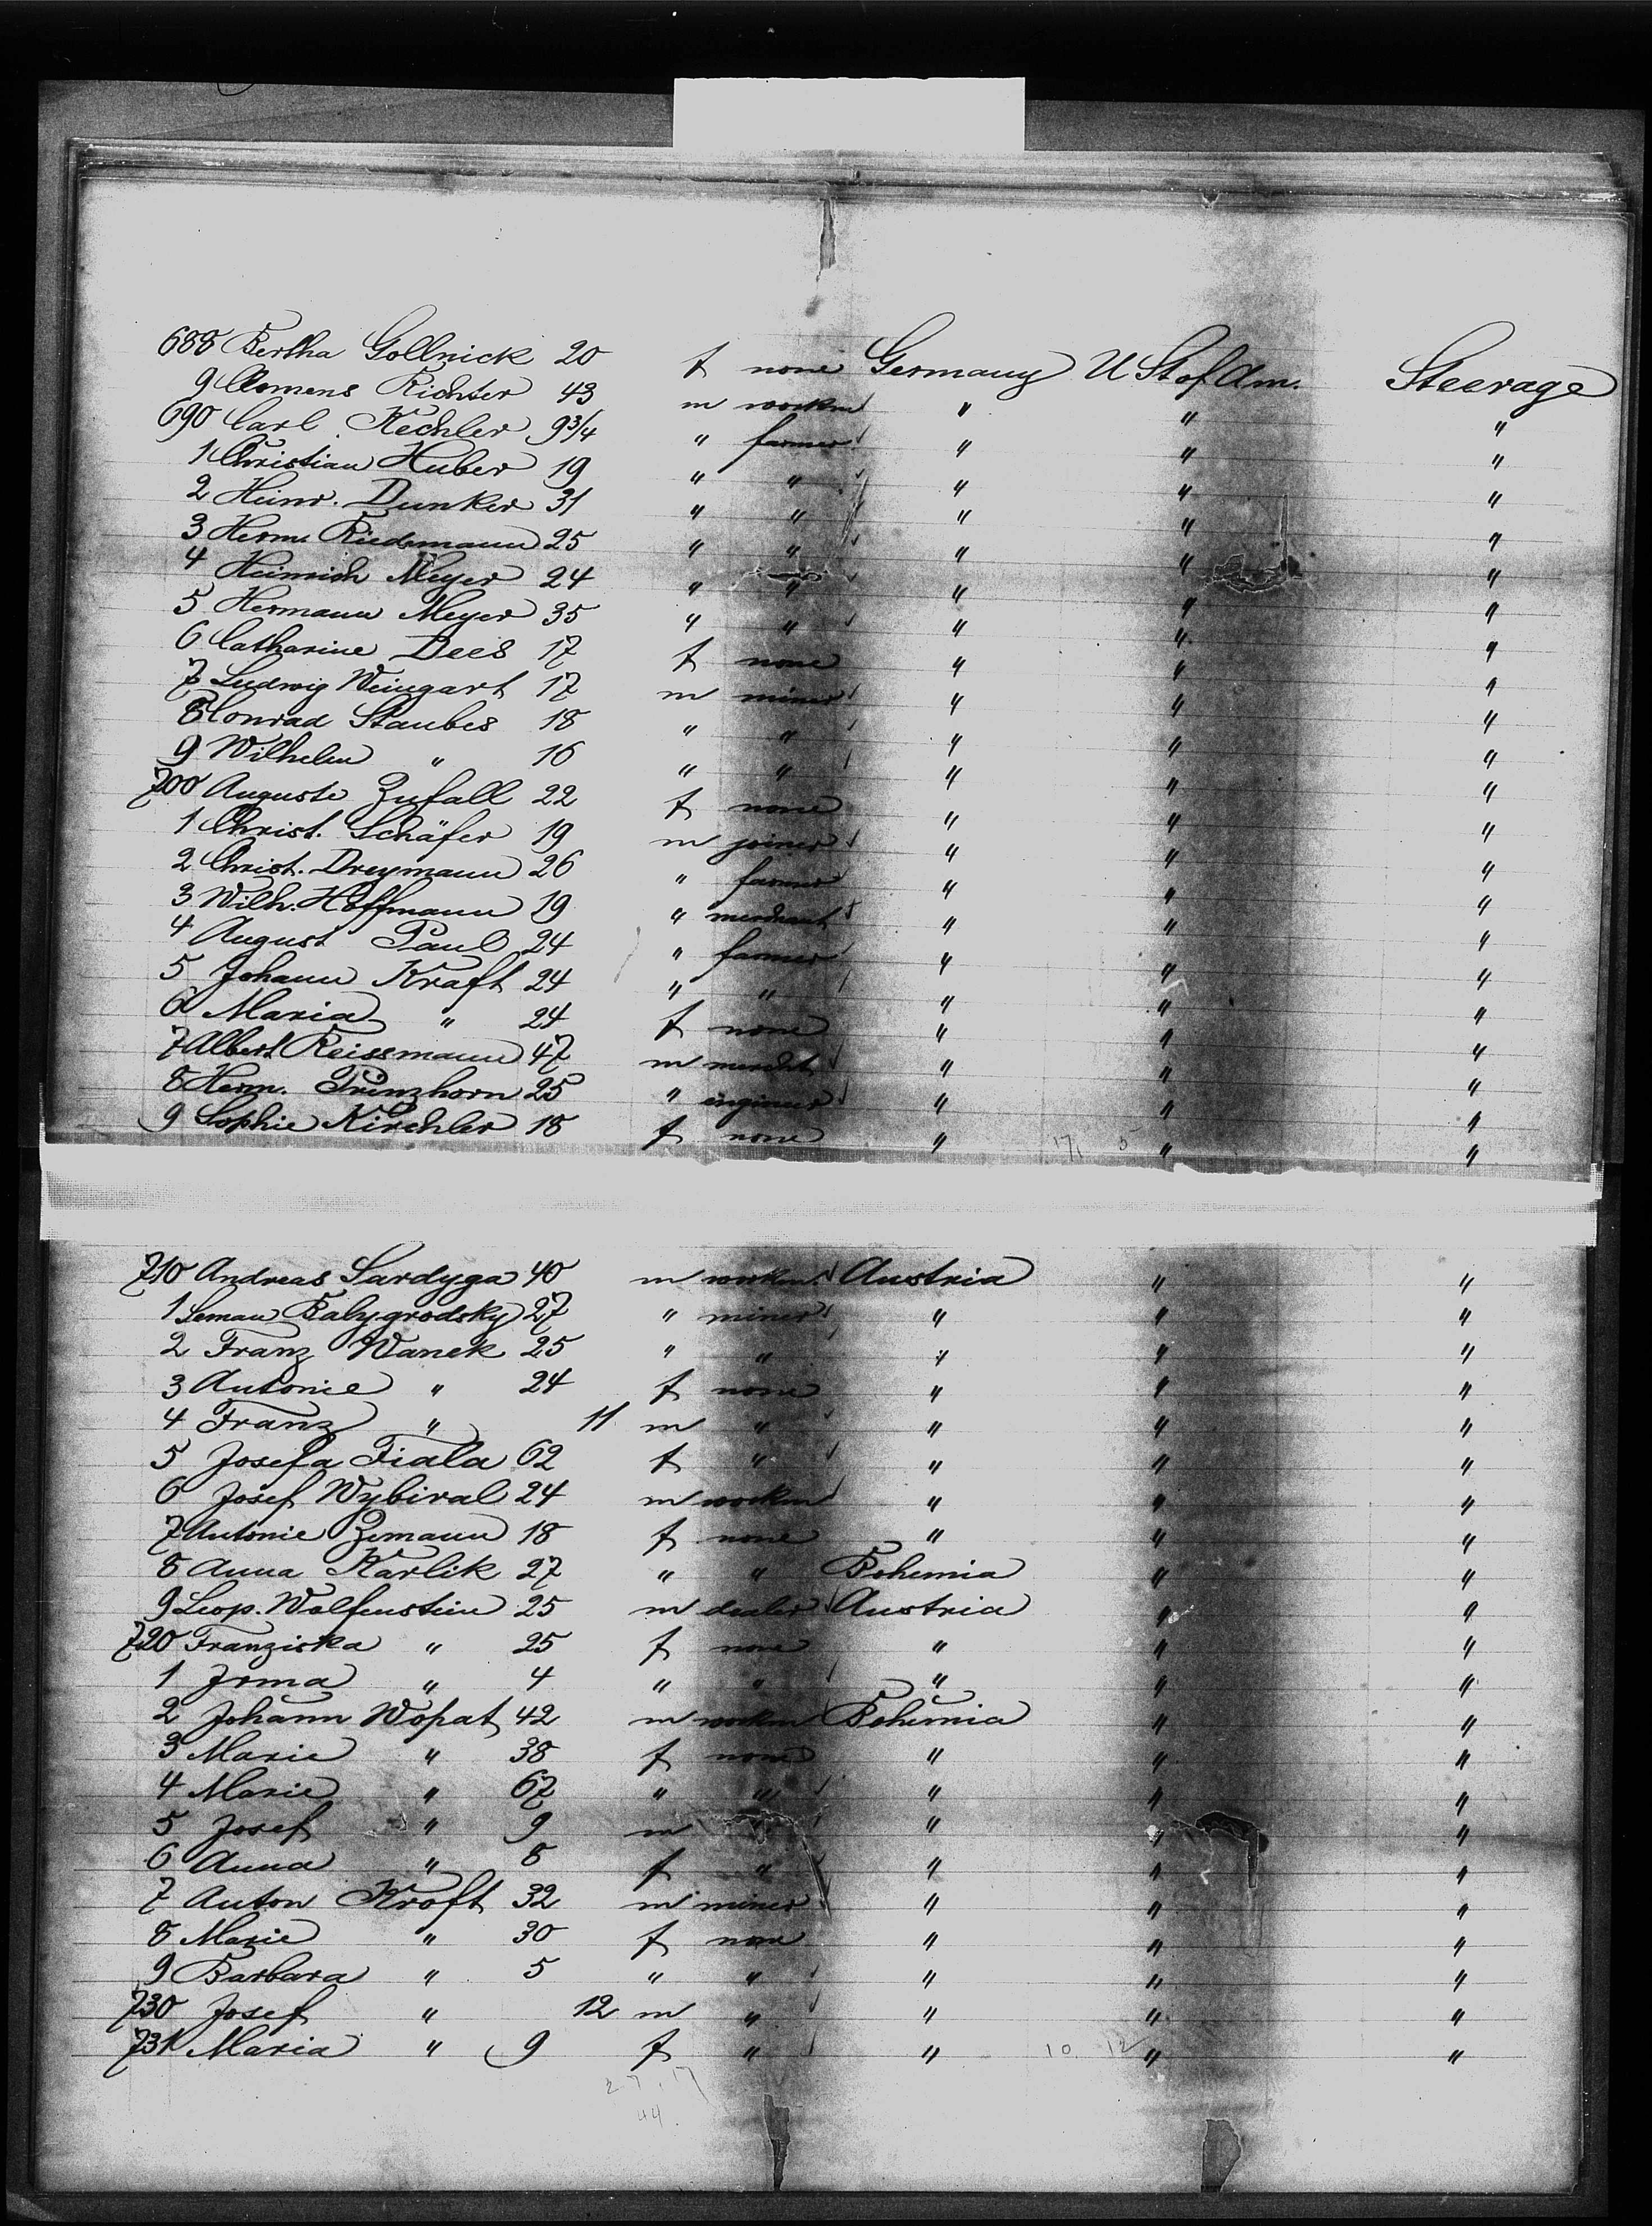 688 Bertha Gollnick 20 f none Germany U St of Am. Steerage
9 Clemens Richter 43 m workm " " "
690 Carl Kechler 9 3/4 " farmer " " "
1 Christian Huber 19 " " " " "
2 Heinr. Dunker 31 " " " " "
3 Herm. Riedemann 25 " " " " "
4 Heinrich Meyer 24 " " " " "
5 Hermann Meyer 35 " " " " "
6 Catharine Dees 17 f none " " "
7 Ludwig Weingart 17 m miner " " "
8 Conrad Staubes 18 " " " " "
9 Wilhelm " 16 " " " " "
700 Auguste Zufall 22 f none " " "
1 Christ. Schäfer 19 m joiner " " "
2 Christ. Dreymann 26 " farmer " " "
3 Wilh. Hoffmann 19 " merchant " " "
4 August Paul 24 " farmer " " "
5 Johann Kraft 24 " " " " "
6 Maria " 24 f none " " "
7 Albert Reissmann 47 m mercht " " "
8 Herm. Prinzhorn 25 " engineer " " "
9 Sophie Kirchler 18 f none " 17 5 " "
710 Andreas Sardyga 40 m workm. Austria " "
1 Seman Balygrodsky 27 " miner " " "
2 Franz Wanek 25 " " " " "
3 Antonie " 24 f none " " "
4 Franz " 11 m " " " "
5 Josefa Fiala 62 f " " " "
6 Josef Wybiral 24 m workm " " "
7 Antonie Zemann 18 f none " " "
8 Anna Karlik 27 " " Bohemia " "
9 Leop. Wolfenstein 25 m dealer Austria " "
720 Franziska " 25 f none " " "
1 Irma " 4 " " " " "
2 Johann Wopat 42 m workm Bohemia " "
3 Marie " 38 f none " " "
4 Marie " 67 " " " " "
5 Josef " 9 m " " " "
6 Anna " 8 f " " " "
7 Anton Kroft 32 m miner " " "
8 Marie " 30 f none " " "
9 Barbara " 5 " " " " "
730 Josef " 12 m " " " "
731 Maria " 9 f " " 10 12 " "
27.17
44.